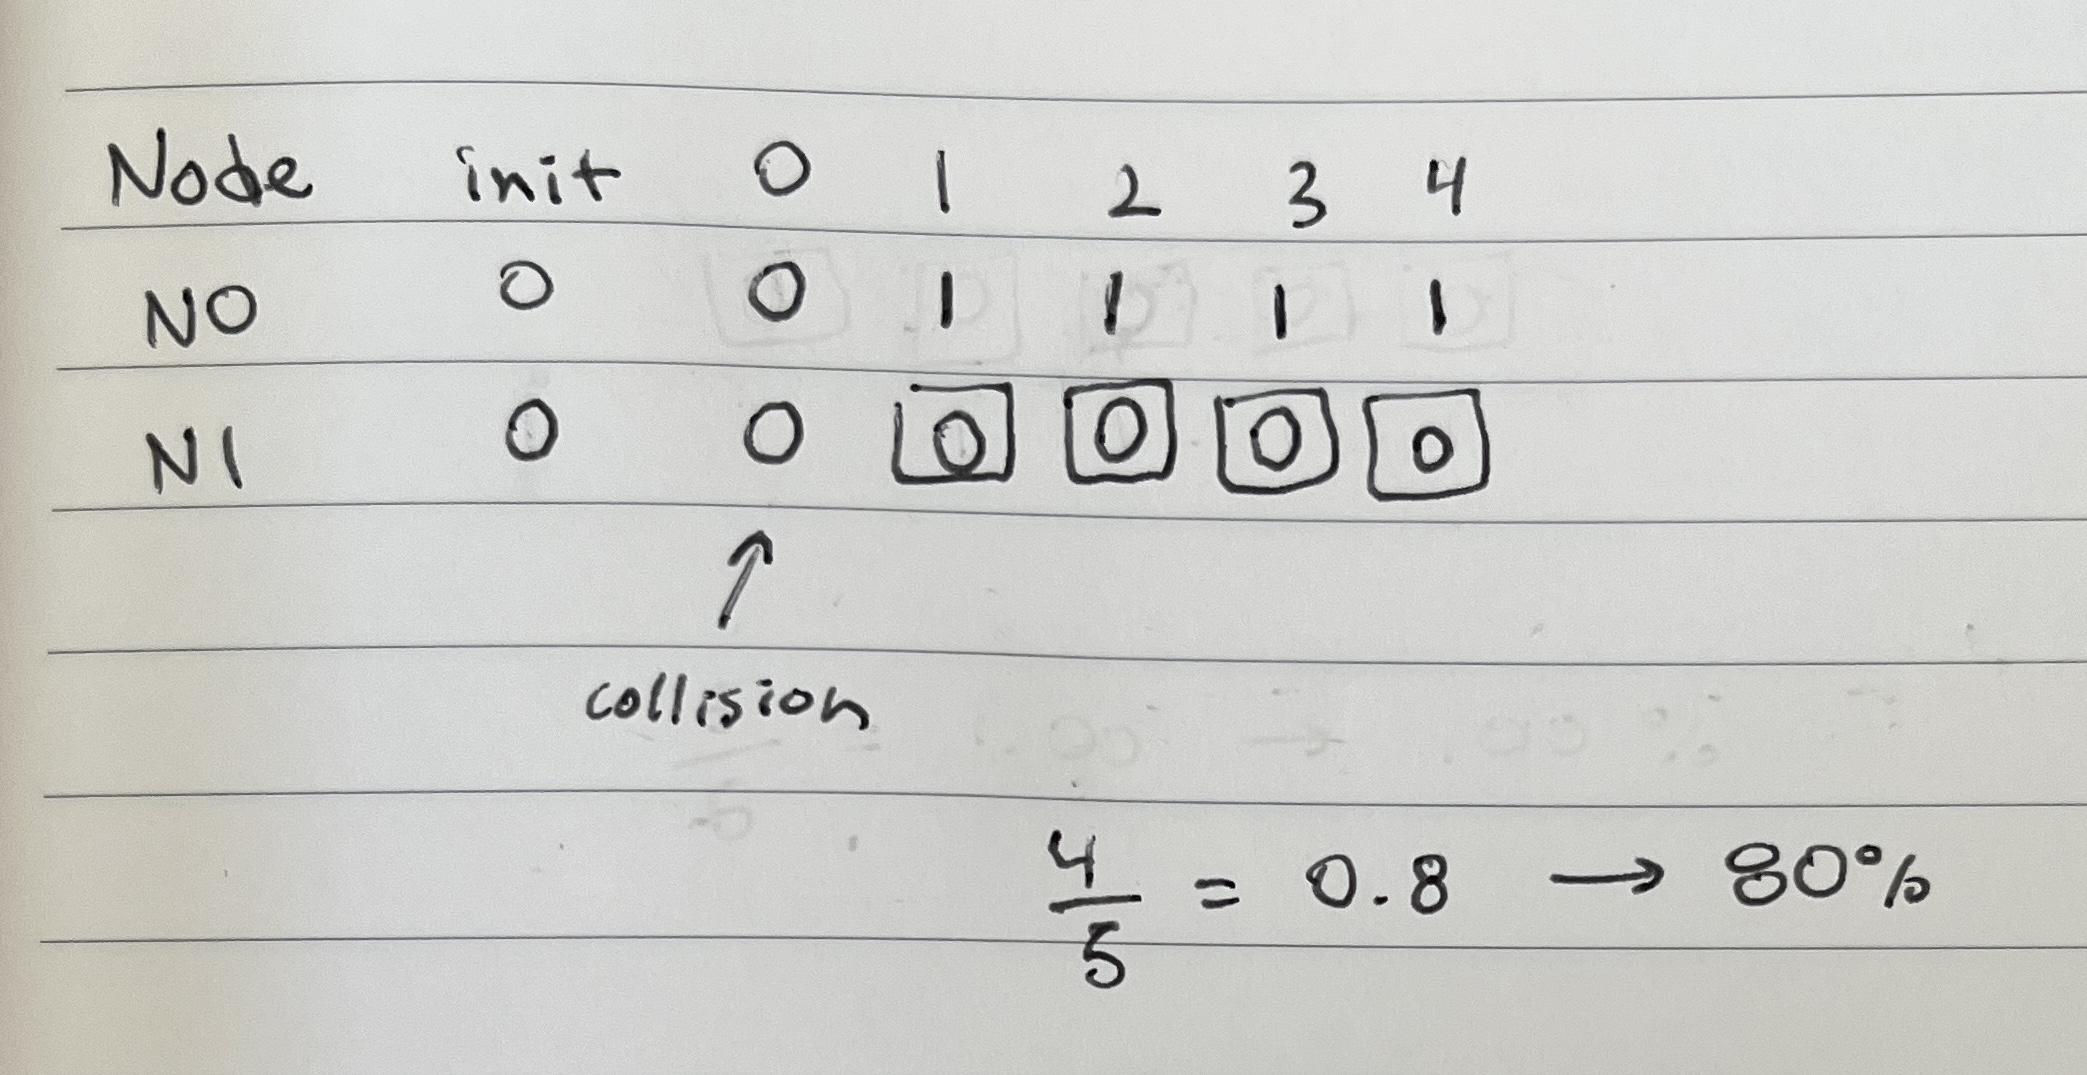 Node init 0 1 2 3 4
N0 0 0 1 1 1 1
N1 0 0 0 0 0 0
↑
collision
4/5 = 0.8 → 80%